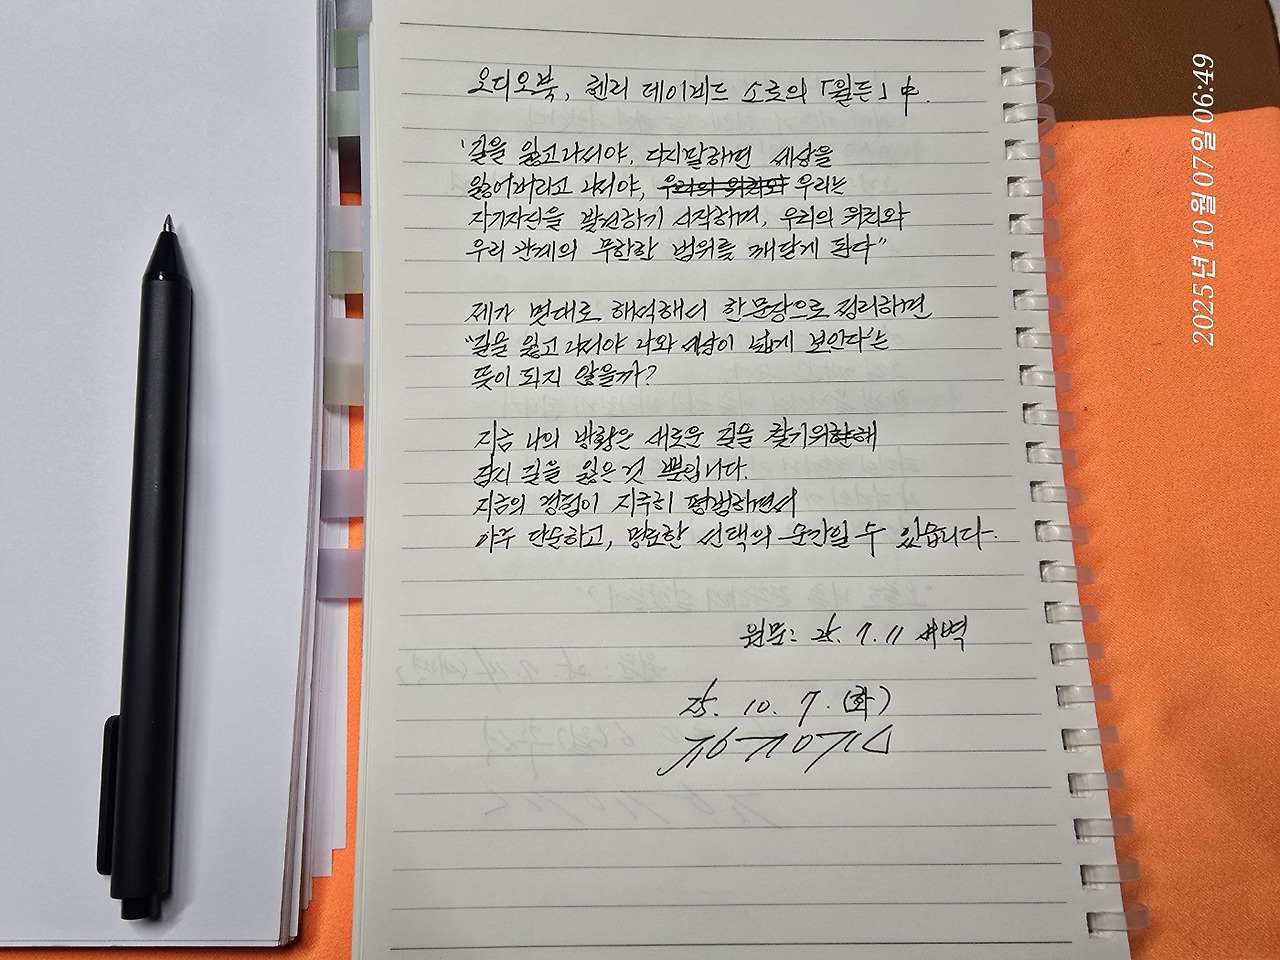 오디오북, 헨리 데이비드 소로의 「월든」 中.
'길을 잃고나서야, 다시말하면 세상을
잃어버리고 나서야, 우리의 위치와 우리는
자기자신을 발견하기 시작하며, 우리의 위치와
우리 관계의 무한한 범위를 깨닫게 된다"
제가 멋대로 해석해서 한문장으로 정리하면
"길을 잃고 나서야 나와 세상이 넓게 보인다"는
뜻이 되지 않을까?
지금 나의 방황은 새로운 길을 찾기위함해
잠시 길을 잃은것 뿐입니다.
지금의 경험이 지극히 평범하면서
아주 단순하고, 명료한 선택의 순간일 수 있습니다.
원문: 25. 7. 11 새벽
25. 10. 7. (화)
2025년10월07일 06:49